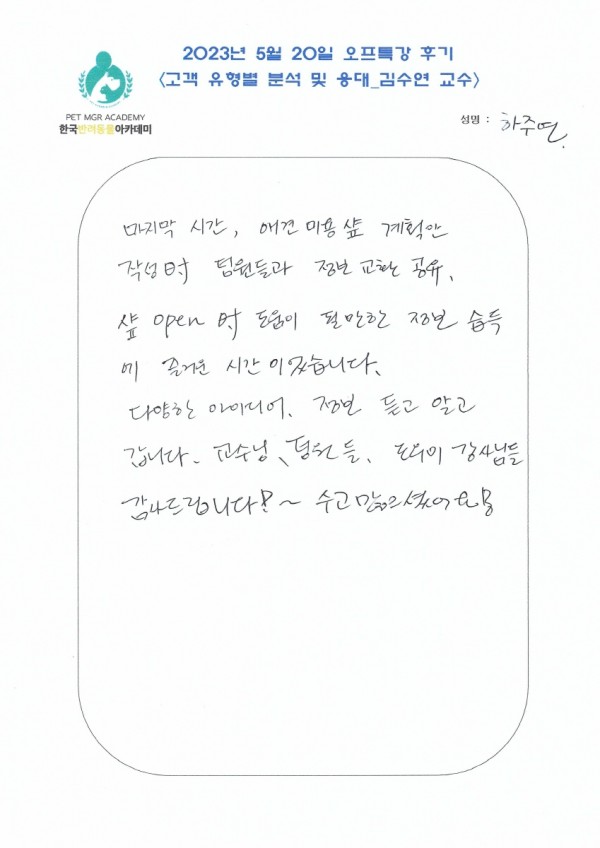 2023년 5월 20일 오프특강 후기
<고객 유형별 분석 및 응대_김수연 교수>
PET MGR ACADEMY
한국반려동물아카데미
성명 : 하주연
마지막 시간, 애견미용샾 계획안
작성時 팀원들과 정보 교환 공유,
샾 open 時 도움이 될만한 정보 습득
에 즐거운 시간이었습니다.
다양한 아이디어, 정보 듣고 알고
갑니다. 교수님, 팀원들, 도우미 강사님들
감사드립니다!~ 수고많으셨어요!